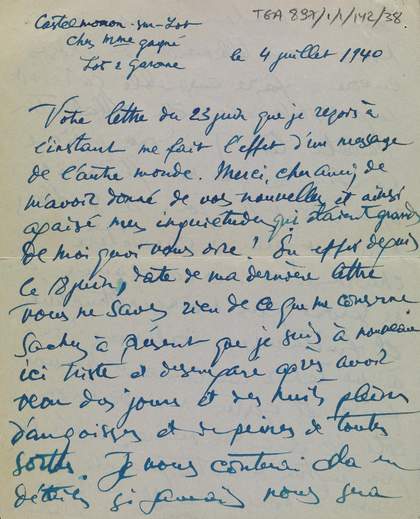 TGA 897/1/1/142/38.
Castelmoron-sur-Lot
chez Mme Gagné
Lot & Garone
le 4 juillet 1940
Votre lettre du 23 juin que je reçois à
l'instant me fait l'effet d'un message
de l'autre monde. Merci, cher ami, de
m'avoir donné de vos nouvelles et ainsi
apaisé mes inquietudes qui étaient grandes
De moi quoi vous dire! En effet depuis
le 18 juin, date de ma dernière lettre
vous ne savez rien de ce que me concerne
Sachez à présent que je suis à nouveau
ici triste et desemparé après avoir
vécu des jours et des nuits pleins
d'angoisses et de peines de toutes
sortes. Je vous conterai cela en
détails si jamais nous sera